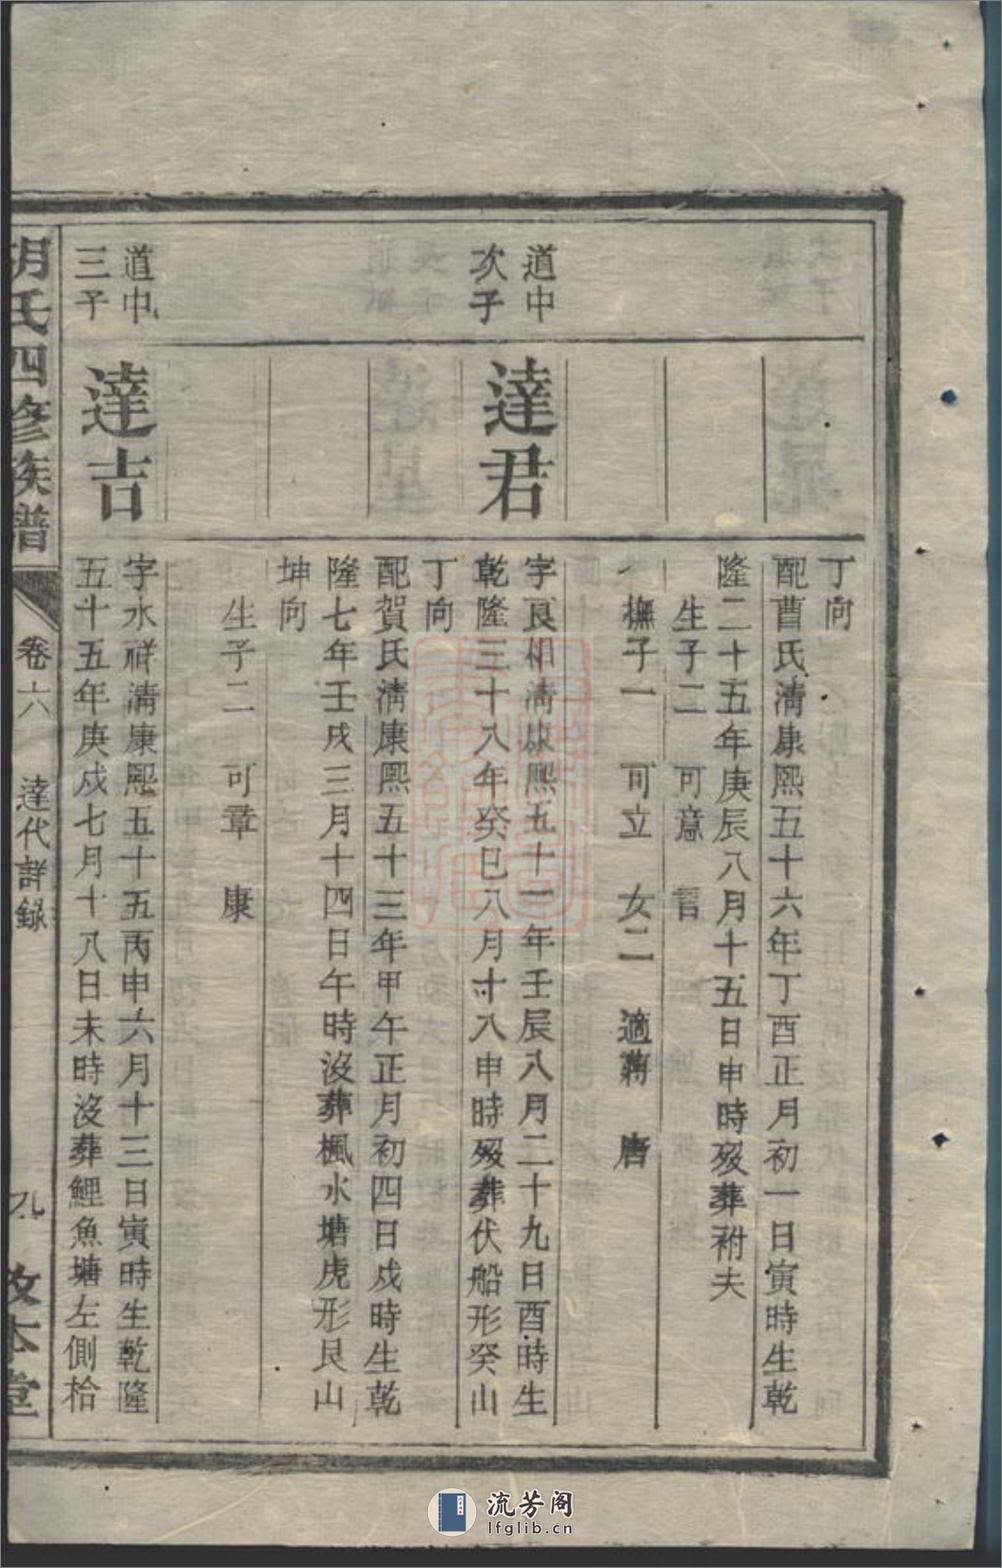 丁向
配曹氏清康熙五十六年丁酉正月初一日寅時生乾
隆二十五年庚辰八月十五日申時歿葬祔夫
生子二 可意 言
撫子一 可立 女二 適蔣 唐
道中
次子
達君
字良相清康熙五十一年壬辰八月二十九日酉時生
乾隆三十八年癸巳八月十八申時歿葬伏船形癸山
丁向
配賀氏清康熙五十三年甲午正月初四日戌時生乾
隆七年壬戌三月十四日午時沒葬楓水塘虎形艮山
坤向
生子二 可章 康
道中
三子
達吉
字水祥清康熙五十五丙申六月十三日寅時生乾隆
五十五年庚戌七月十八日未時沒葬鯉魚塘左側拾
胡氏四修族譜
卷六 達代詳錄
九 敦本堂
流芳阁
lfglib.cn